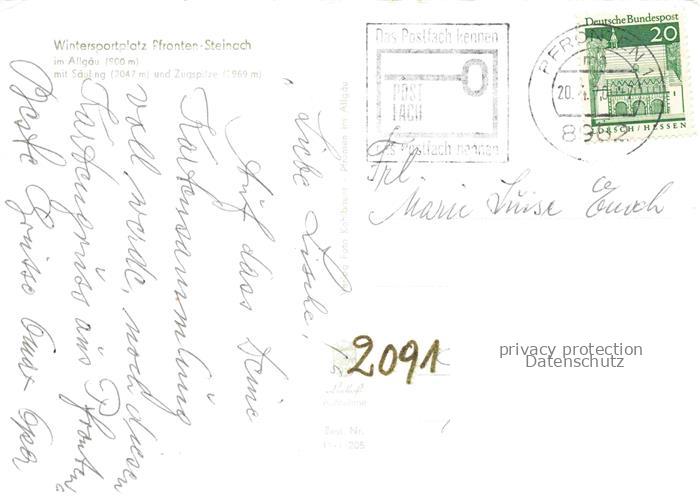 Wintersportplatz Pfronten-Steinach
im Allgäu (900 m)
mit Säuling (2047 m) und Zugspitze (2969 m)
Liebe Lische,
Auf dass Deine
Kartensammlung
voll werde, noch diesen
Kartengruss aus Pfronten
Beste Grüsse Euer Opa
Das Postfach kennen
POST
FACH
Das Postfach nennen
PFRONTEN 1
20.
8962
Deutsche Bundespost
20
LORSCH/HESSEN
Frl.
Marie Luise
Pfronten im Allgäu
2091
Best. Nr.
privacy protection
Datenschutz